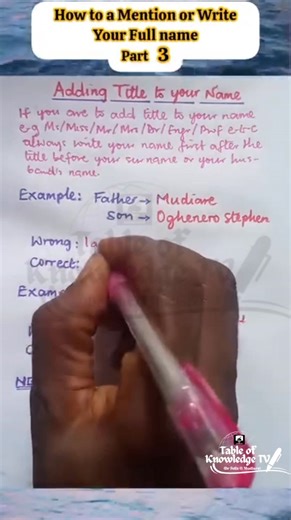 How to a Mention or Write
Your Full name
Part 3
Adding Title to your Name
If you are to add title to your name
e.g Ms/Miss/Mr/Mrs/Dr/Engr/Prof e.t.c
always write your name first after the
title before your surname or your hus-
band's name.
Example: Father → Mudiare
Son → Oghenero Stephen
Wrong: I a
Correct:
Exam
Table of
Knowledge TV